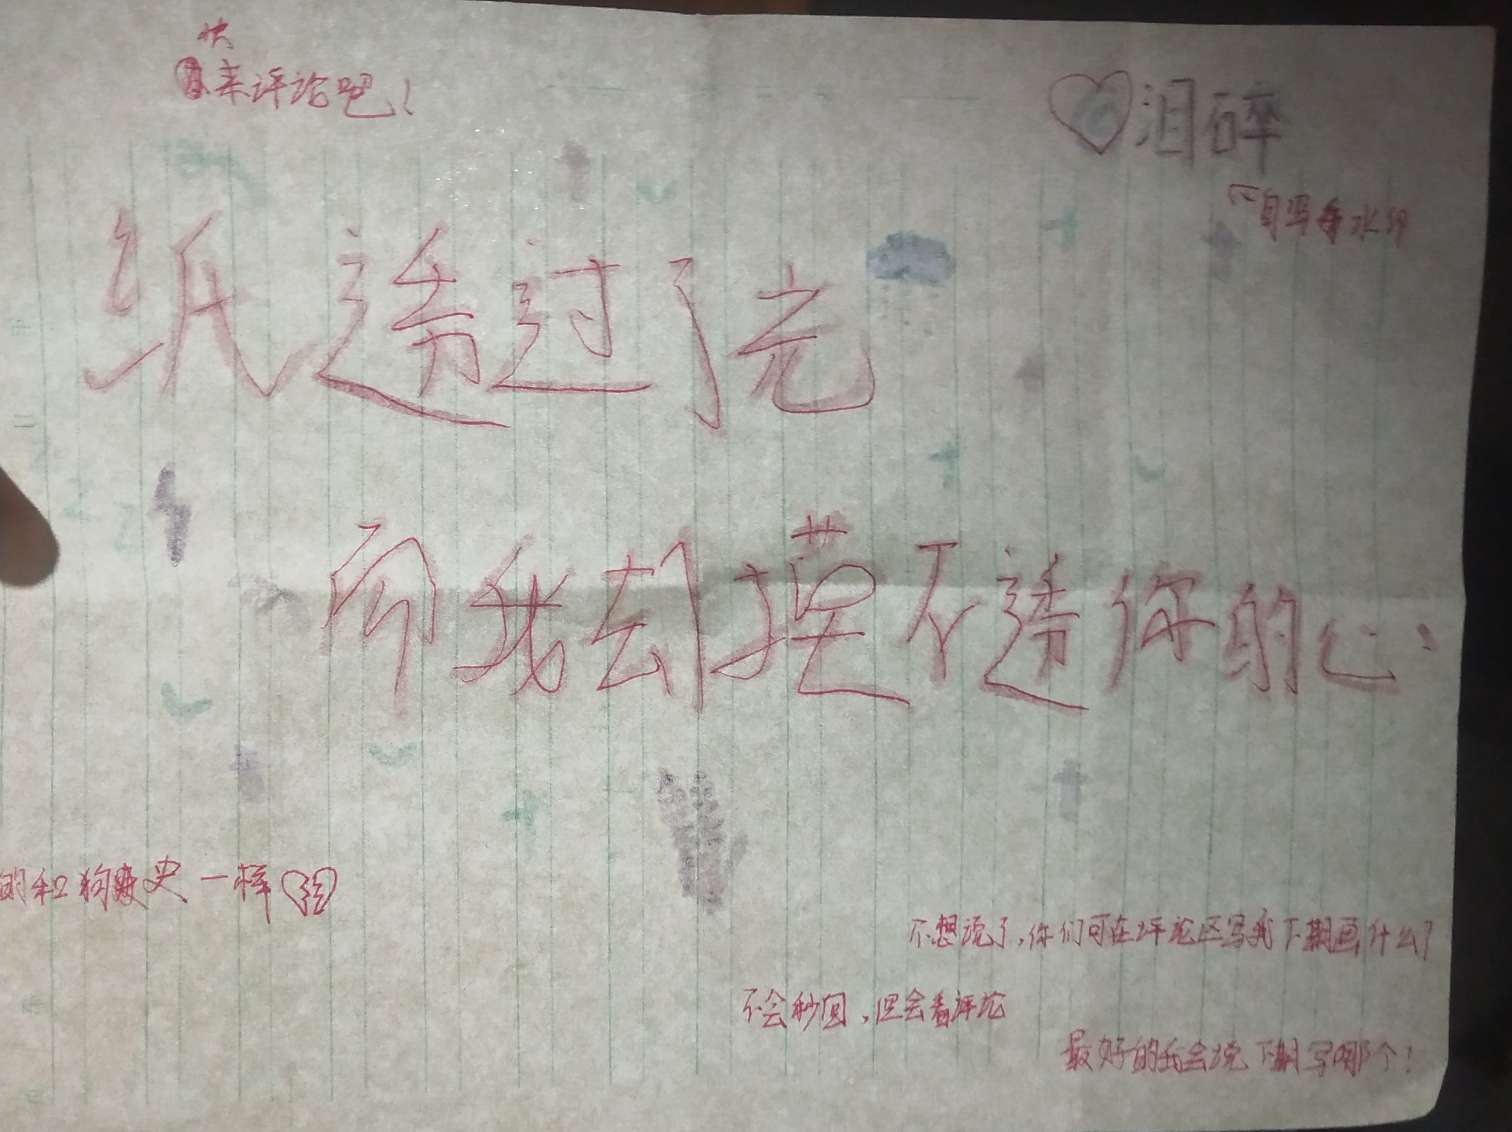 快
来评论吧！
泪碎
自写有水印
纸透过了光
而我却摸不透你的心:
的和狗 史一样
不想说了,你们可在评论区写我下期画什么?
不会秒回,但会看评论
最好的我会说下期写哪个!